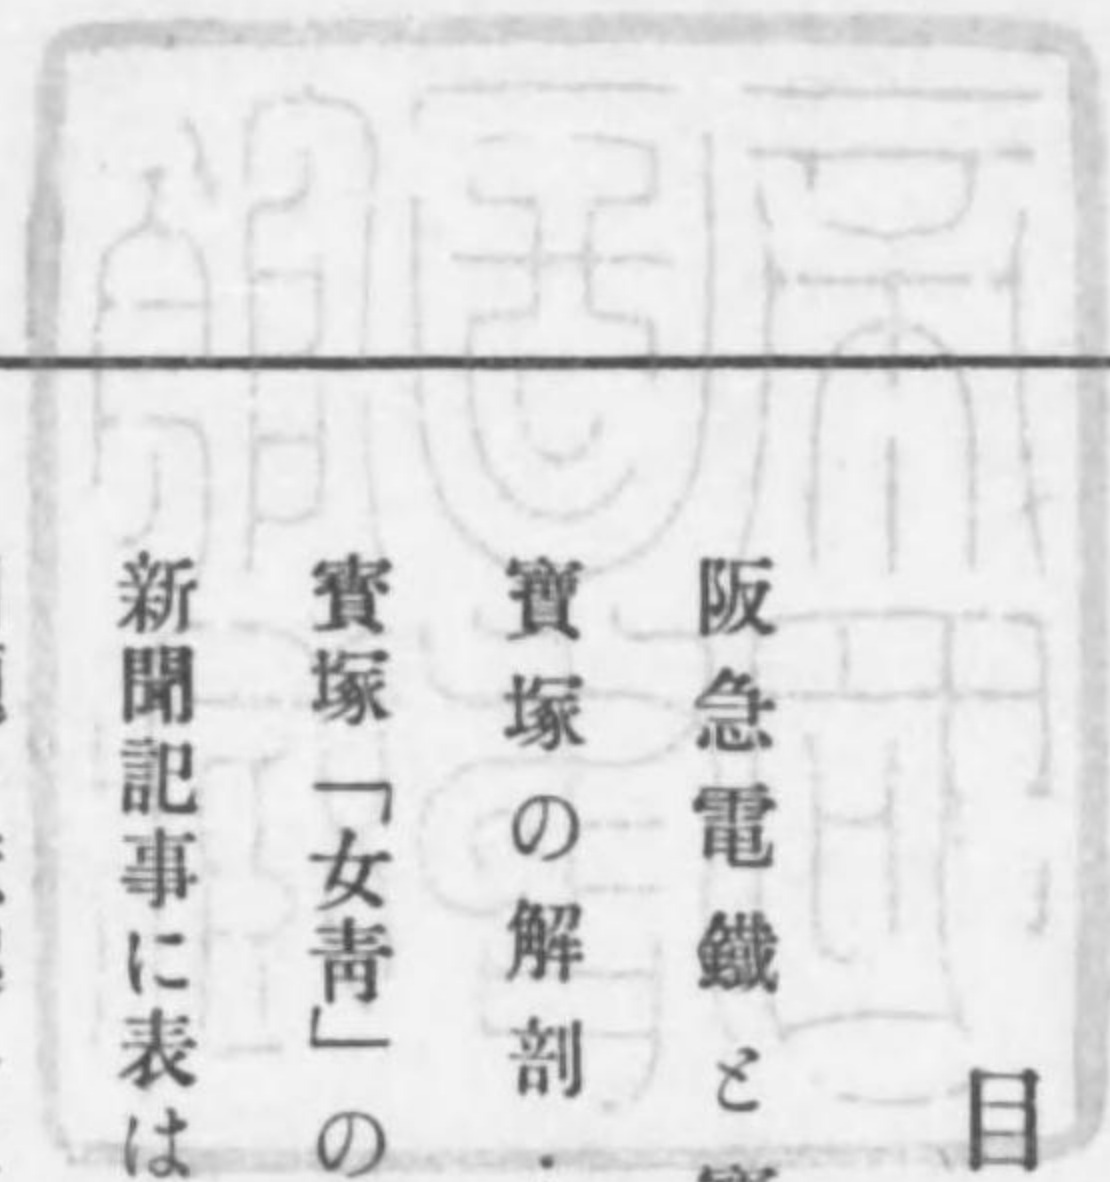 目
阪急電鐵と寶
寶塚の解剖・
寳塚「女靑」の
新聞記事に表は